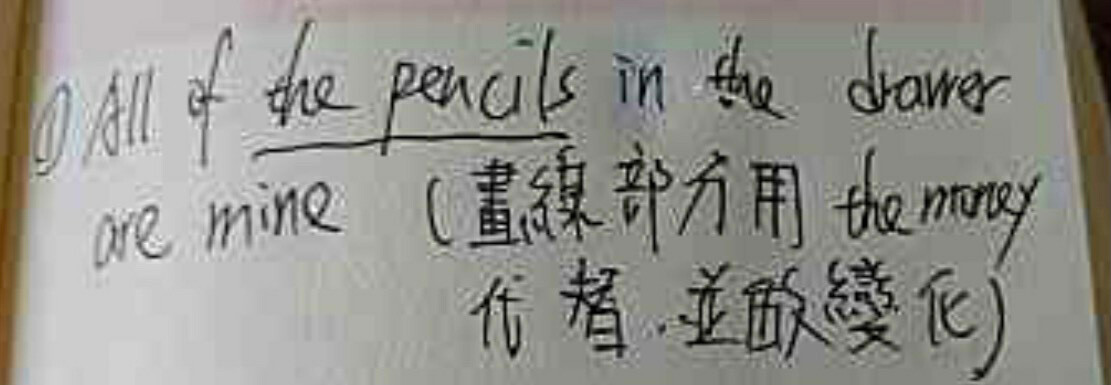 ① All of the pencils in the drawer
are mine (畫線部分用 the money
代替.並做變化)